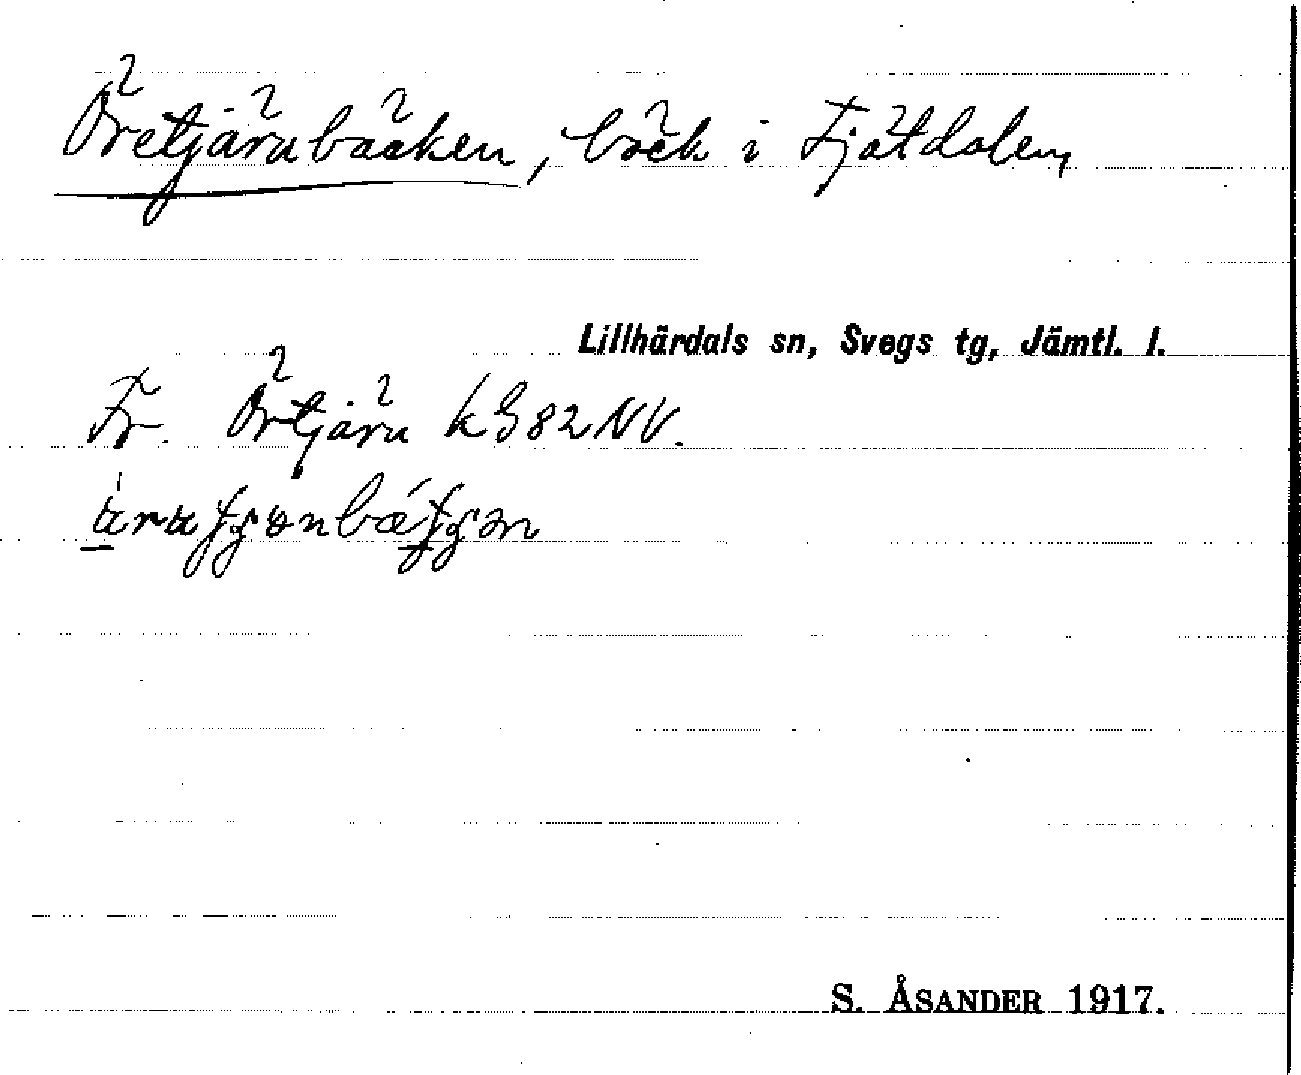 Öretjärnbäcken, bäck i Fjätdalen,
Lillhärdals sn, Svegs tg, Jämtl. l.
Fr. Örtjärn kG82NV.
S. ÅSANDER 1917.